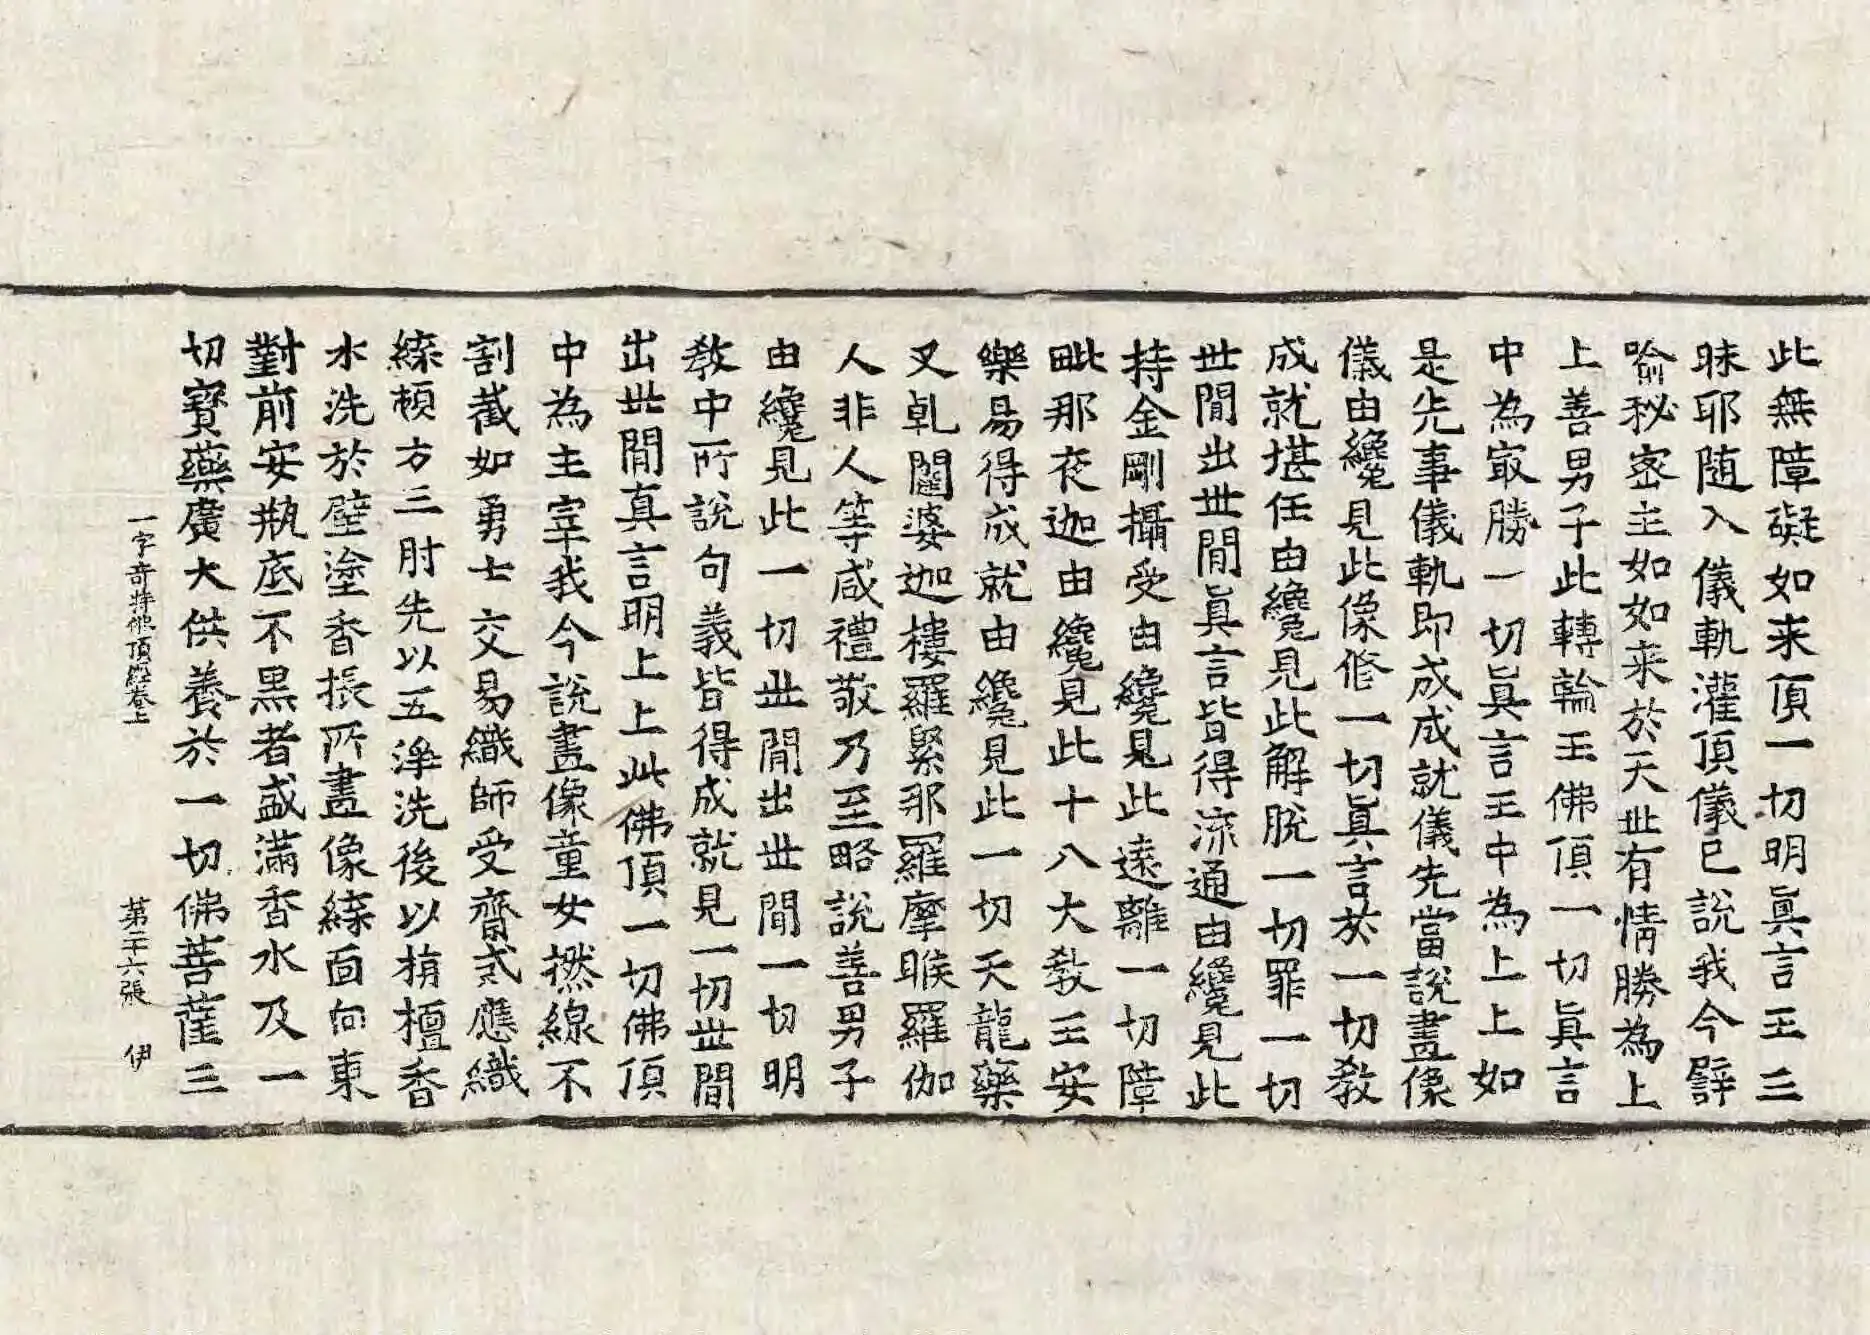 此無障礙如来頂一切明真言王三
昧耶随入儀軌灌頂儀已說我今譬
喻秘密主如如来於天世有情勝為上
上善男子此轉輪王佛頂一切真言
中為㝡勝一切真言王中為上上如
是先事儀軌即成成就儀先當說畫像
儀由纔見此像修一切真言於一切教
成就堪任由纔見此解脫一切罪一切
世間出世間真言皆得流通由纔見此
持金剛攝受由纔見此遠離一切障
毗那夜迦由纔見此十八大教王安
樂易得成就由纔見此一切天龍藥
叉乹闥婆迦樓羅緊那羅摩睺羅伽
人非人等咸禮敬乃至略說善男子
由纔見此一切世間出世間一切明
教中所說句義皆得成就見一切世間
出世間真言明上上此佛頂一切佛頂
中為主宰我今說畫像童女撚線不
割截如勇士交易織師受齋戒應織
緤頓方三肘先以五淨洗後以栴檀香
水洗於壁塗香掁所畫像緤面向東
對前安瓶底不黑者盛滿香水及一
切寶藥廣大供養於一切佛菩薩三
一字奇特佛頂經卷上 第二十六張 伊